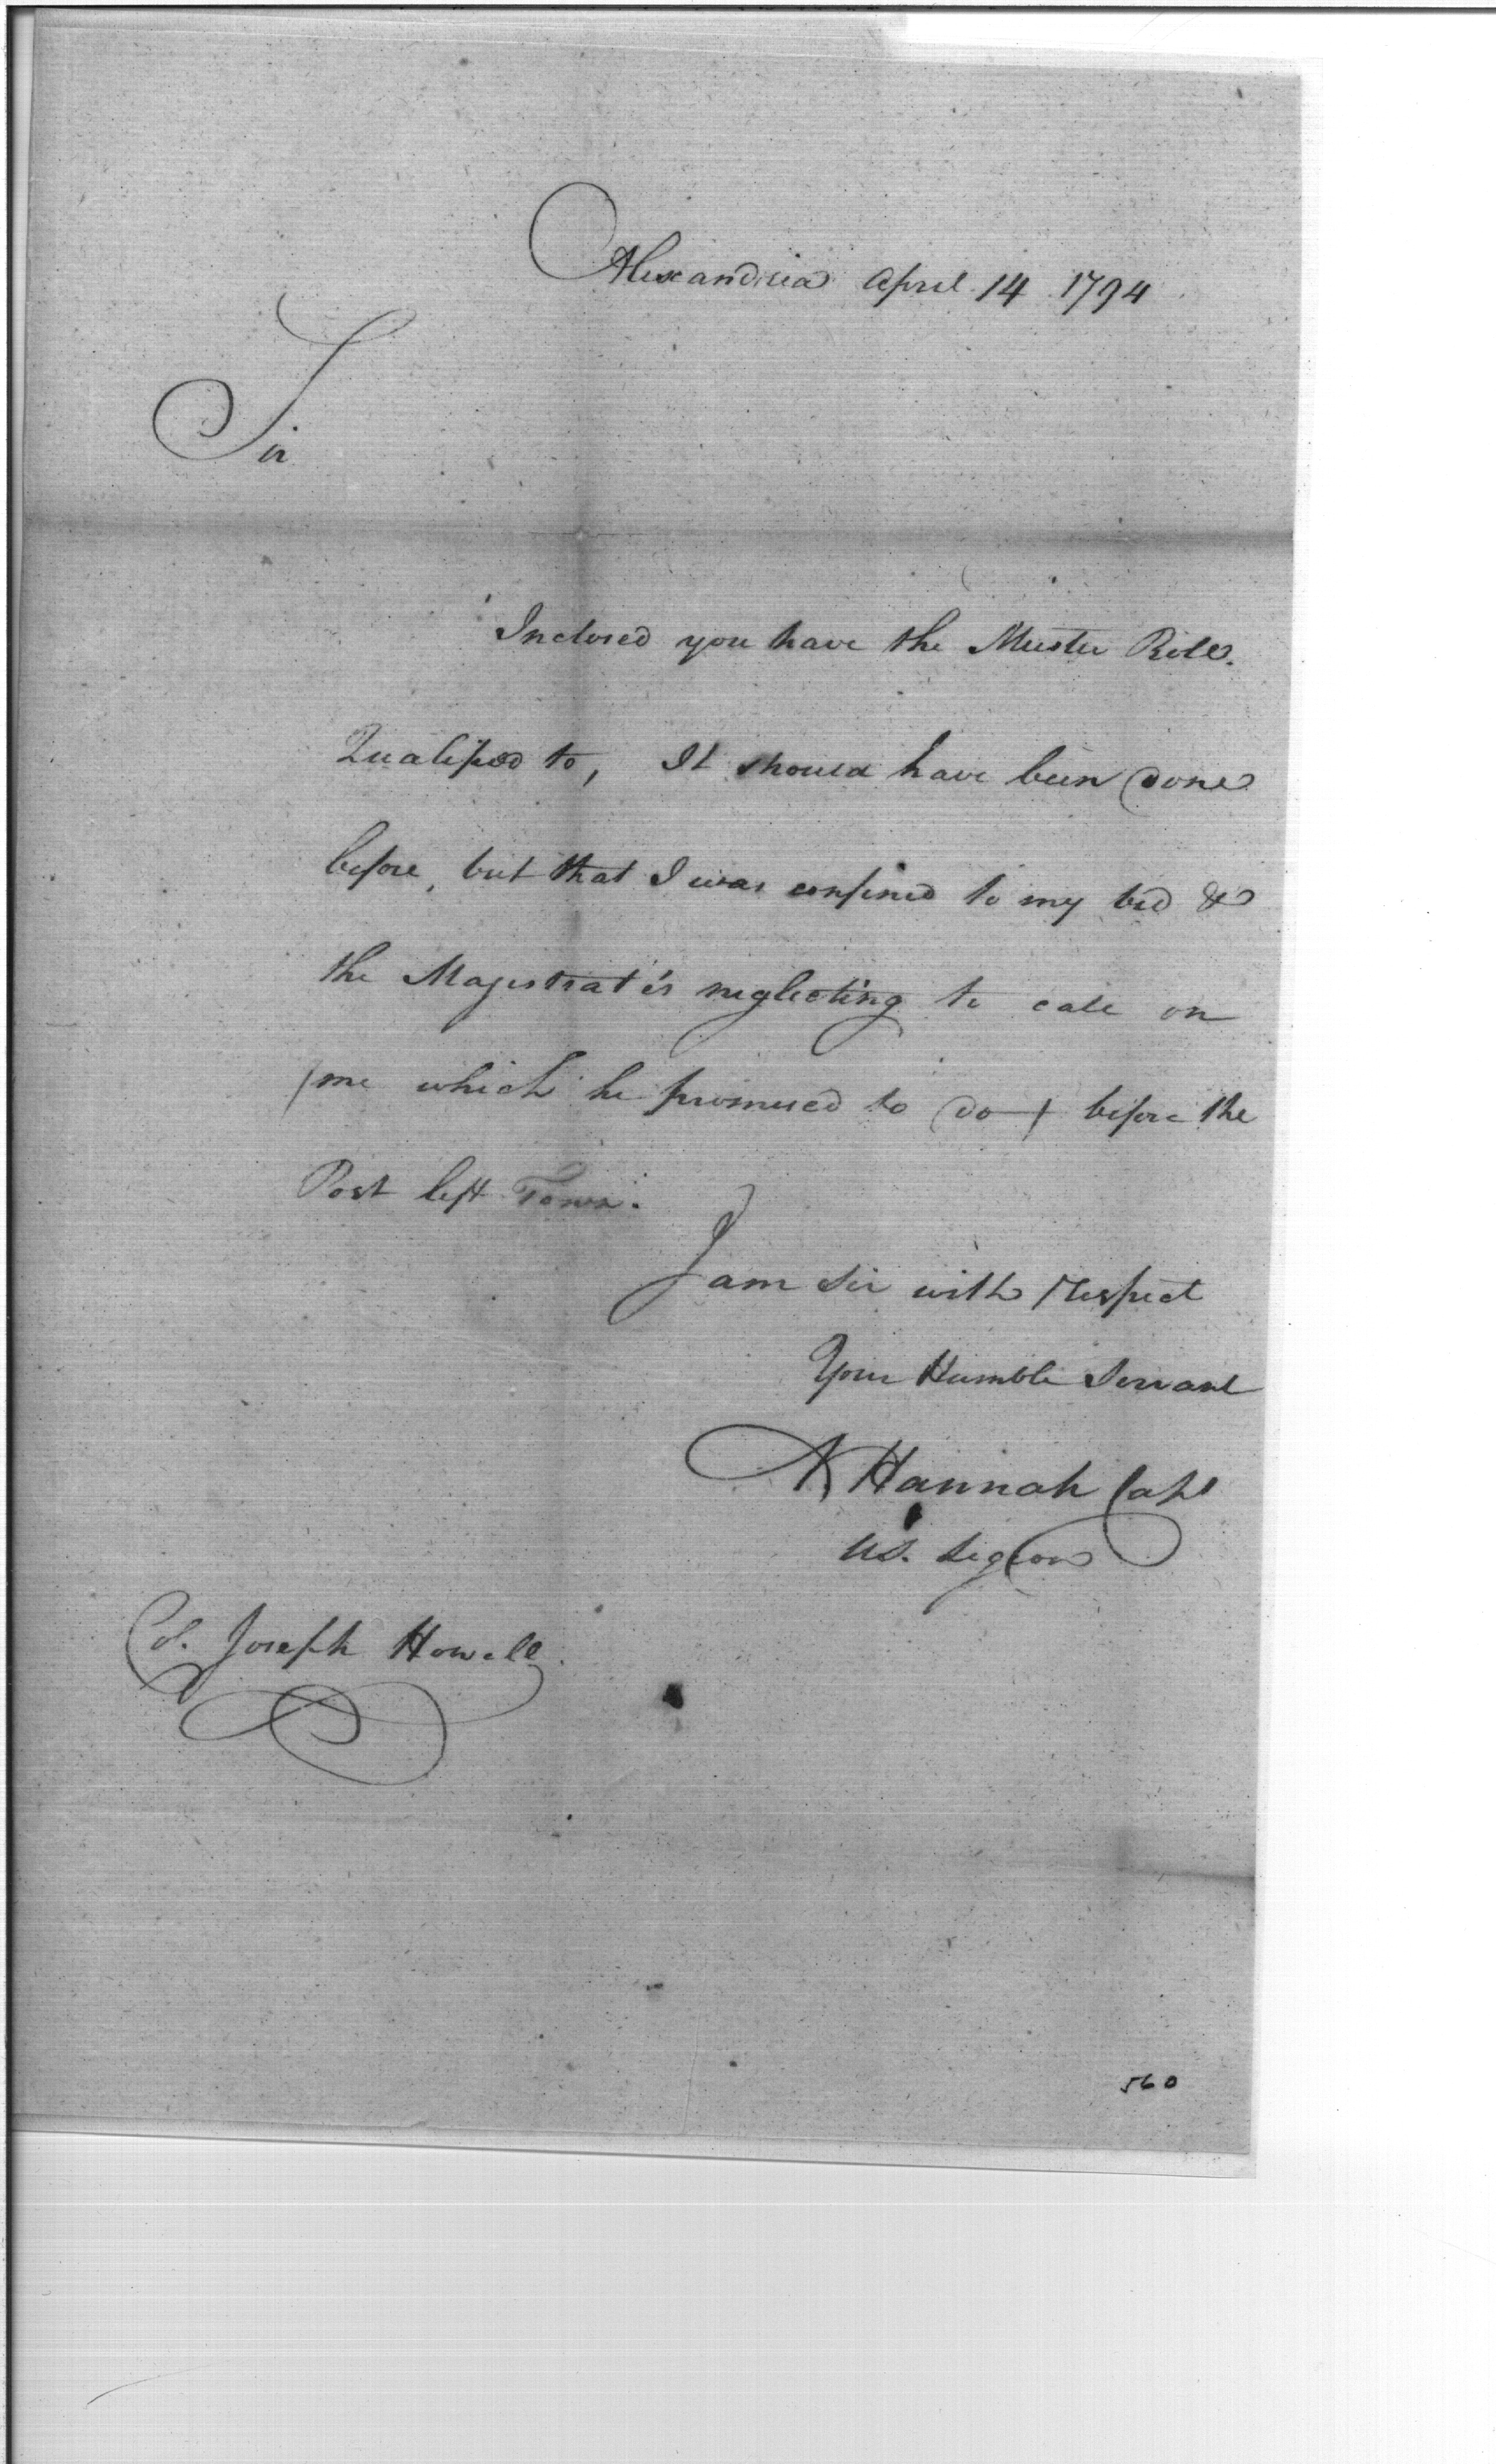 Alexandria April 14 1794
Sir
Inclosed you have the Muster Role.
Qualified to, It should have been done
before, but that I was confined to my bed &
the Magistrat'es neglecting to call on
me which he promised to do before the
Post left Town.
I am Sir with Respect
Your Humble Servant
N Hannah Capt
US. Legion
Col. Joseph Howell
560